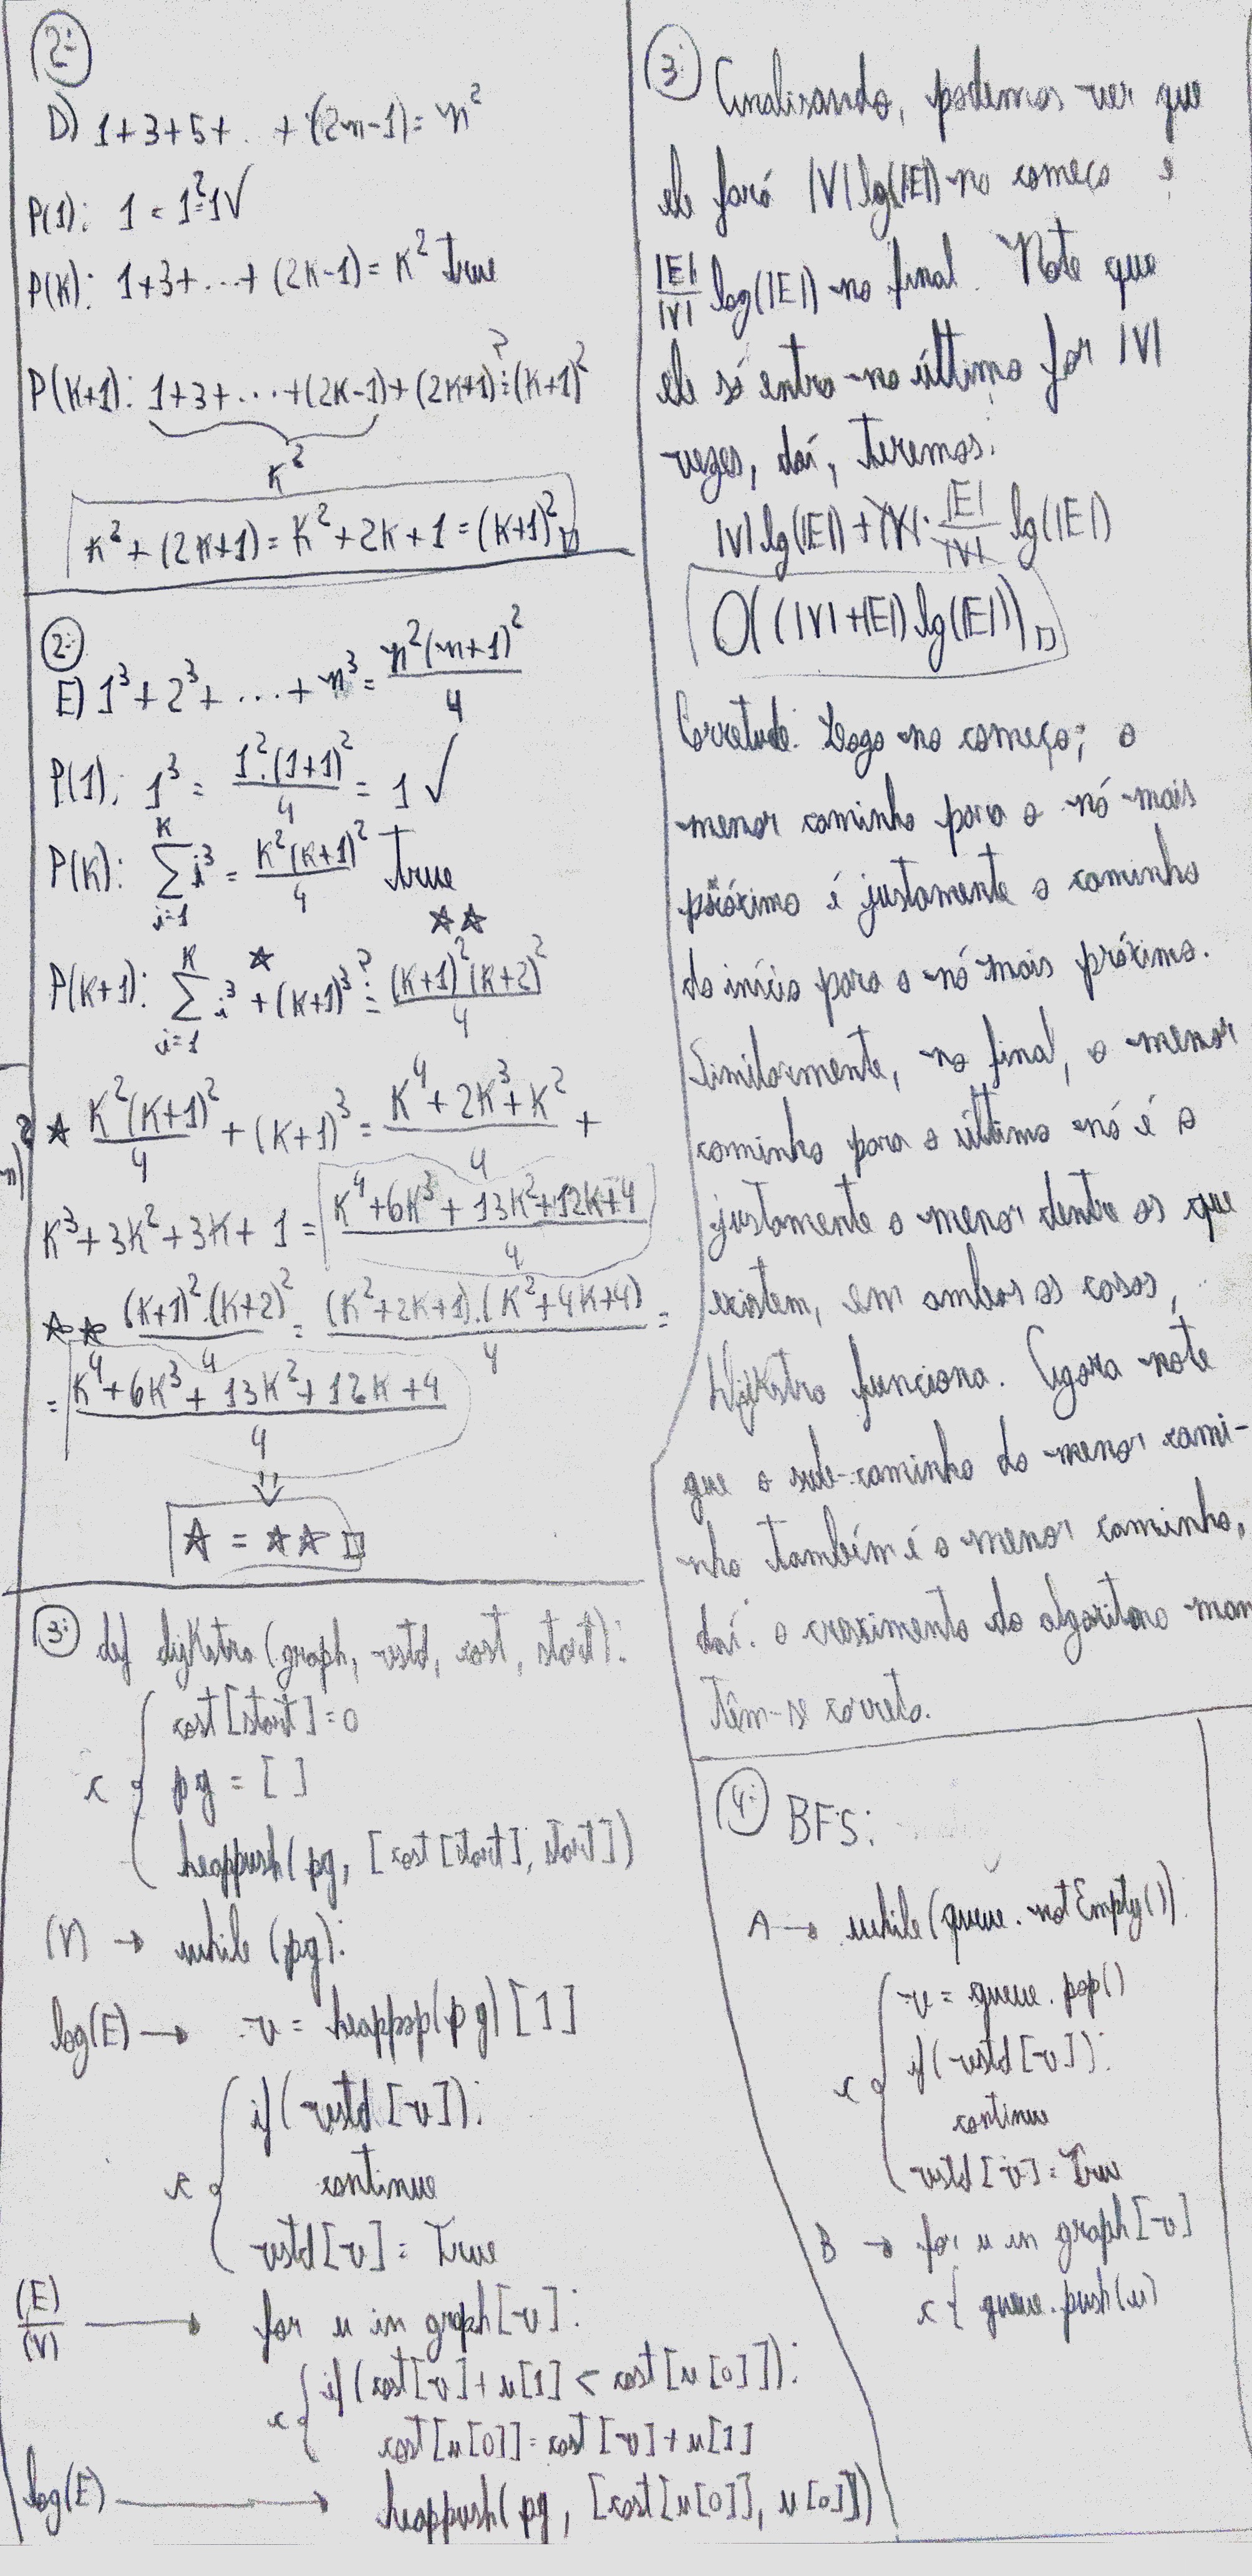 2:
D) 1+3+5+...+(2n-1)=n²
P(1): 1 = 1² = 1 ✓
P(K): 1+3+...+(2K-1)=K² True
P(K+1): 1+3+...+(2K-1)+(2K+1)≟(K+1)²
K²
K²+(2K+1)=K²+2K+1=(K+1)² □
2:
E) 1³+2³+...+n³ = n²(n+1)²/4
P(1): 1³ = 1².(1+1)²/4 = 1 ✓
P(K): ∑_{i=1}^{K} i³ = K²(K+1)²/4 True
☆☆
P(K+1): ∑_{i=1}^{K} i³ ☆ +(K+1)³ ≟ (K+1)²(K+2)²/4
☆ K²(K+1)²/4 + (K+1)³ = K⁴+2K³+K²/4 +
K³+3K²+3K+1 = K⁴+6K³+13K²+12K+4/4
☆☆ (K+1)².(K+2)²/4 = (K²+2K+1).(K²+4K+4)/4 =
= K⁴+6K³+13K²+12K+4/4
⇓
☆ = ☆☆ □
3: def dijkstra(graph, vistd, cost, start):
cost[start]=0
c pq = [ ]
heappush(pq, [cost[start], start])
(V) → while (pq):
log(E) → v = heappop(pq)[1]
if(vistd[v]):
c continue
vistd[v] = True
(E)/(V) → for u in graph[v]:
c if(cost[v]+u[1] < cost[u[0]]):
cost[u[0]]=cost[v]+u[1]
log(E) → heappush(pq, [cost[u[0]], u[0]])
3: Analisando, podemos ver que
ele fará |V|lg(|E|) no começo e
|E|/|V| log(|E|) no final. Note que
ele só entra no último for |V|
vezes, daí, teremos:
|V|lg(|E|)+|V|.|E|/|V| lg(|E|)
O((|V|+|E|)lg(|E|)) □
Corretude: Logo no começo; o
menor caminho para o nó mais
próximo é justamente o caminho
do início para o nó mais próximo.
Similarmente, no final, o menor
caminho para o último nó é o
justamente o menor dentre os que
existem, em ambos os casos,
Dijkstra funciona. Agora note
que o sub-caminho do menor cami-
nho também é o menor caminho,
daí: o crescimento do algoritmo man
têm-se correto.
4: BFS:
A → while(queue.notEmpty()):
v = queue.pop()
c if(vistd[v]):
continue
vistd[v] = True
B → for u in graph[v]
c { queue.push(u)